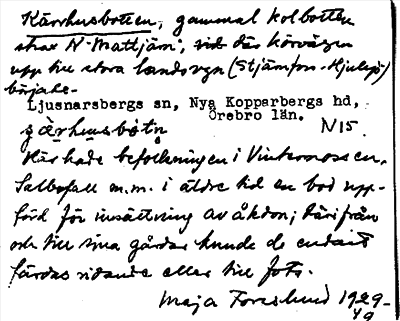 Kärrhusbotten, gammal kolbotten
strax N Mattjärn, vid där körvägen
upp till stora landsvgn (Stjärnfors-Hjulsjö)
började.
Ljusnarsbergs sn, Nya Kopparbergs hd,
Örebro län.
N15.
Här hade befolkningen i Vintermossen,
Salbofall m.m. i äldre tid en bod upp-
förd för insättning av åkdon; därifrån
och till sina gårdar kunde de endast
färdas ridande eller till fots.
Maja Forsslund 1929-
49